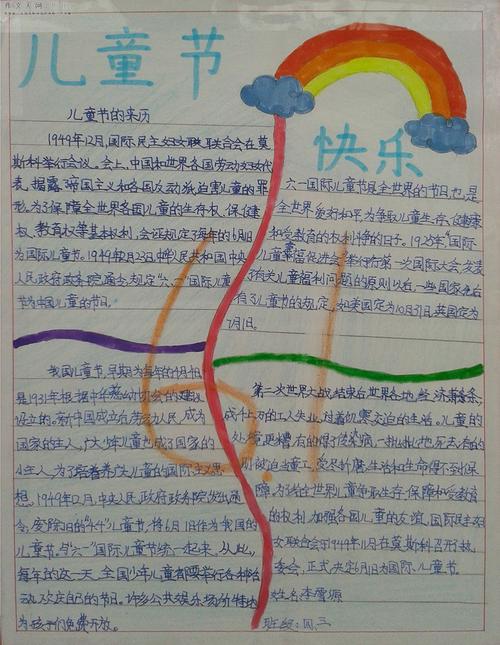 儿童节
快乐
儿童节的来历
1949年12月,国际民主妇女联合会在莫
斯科举行会议。会上,中国和世界各国劳动妇女代
表,揭露帝国主义和各国反动派迫害儿童的罪
行。为了保障全世界各国儿童的生存权、保健
权、教育权等基本权利,会议规定每年的6月1日
为国际儿童节。1949年12月23日,中华人民共和国中央
人民政府政务院通令规定“六一”国际儿童
节为中国儿童的节日。
六一国际儿童节是全世界的节日也是
全世界爱好和平为争取儿童生存、健康
和受教育的权利斗争的日子。1925年“国际
儿童幸福促进会”举行第一次国际大会,发表
了有关儿童福利问题的原则以后一些国家先后
有了儿童节的规定,如美国定为10月31日,英国定为
7月1日。
我国儿童节,早期为每年的4月4日
是1931年根据中华慈幼协会的建议
设立的。新中国成立后劳动人民,成为
国家的主人,广大少年儿童也成了国家的
小主人,为了培养广大儿童的国际主义思
想,1949年12月,中央人民政府政务院发出通
令,废除旧的“四四”儿童节,将6月1日作为我国的
儿童节,与“六一”国际儿童节统一起来,从此,
每年的这一天,全国少年儿童都要举行各种活
动,欢庆自己的节日。许多公共娱乐场所特地
为孩子们免费开放。
第二次世界大战结束后世界各地,经济萧条,
成千上万的工人失业,过着饥寒交迫的生活。儿童的
处境更糟,有的得了传染病,一批批地死去有的
则被迫当童工,受尽折磨,生活和生命得不到保
障,为给全世界儿童争取生存、保障和受教育
的权利,加强各国儿童的友谊,国际民主妇
女联合会于1949年11月在莫斯科召开执
委会,正式决定6月1日为国际儿童节。
姓名:李雪源
班级:四、三